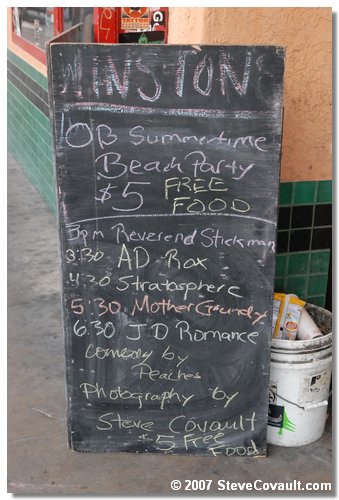 TATTOO
WINSTONS
OB Summertime
Beach Party
$5 FREE
FOOD
3pm Reverend Stickman
3:30 AD Rox
4:30 Stratosphere
5:30 Mother Grundy
6:30 JD Romance
Comedy by
Peaches
Photography by
Steve Covault
$5 Free
FOOD
© 2007 SteveCovault.com